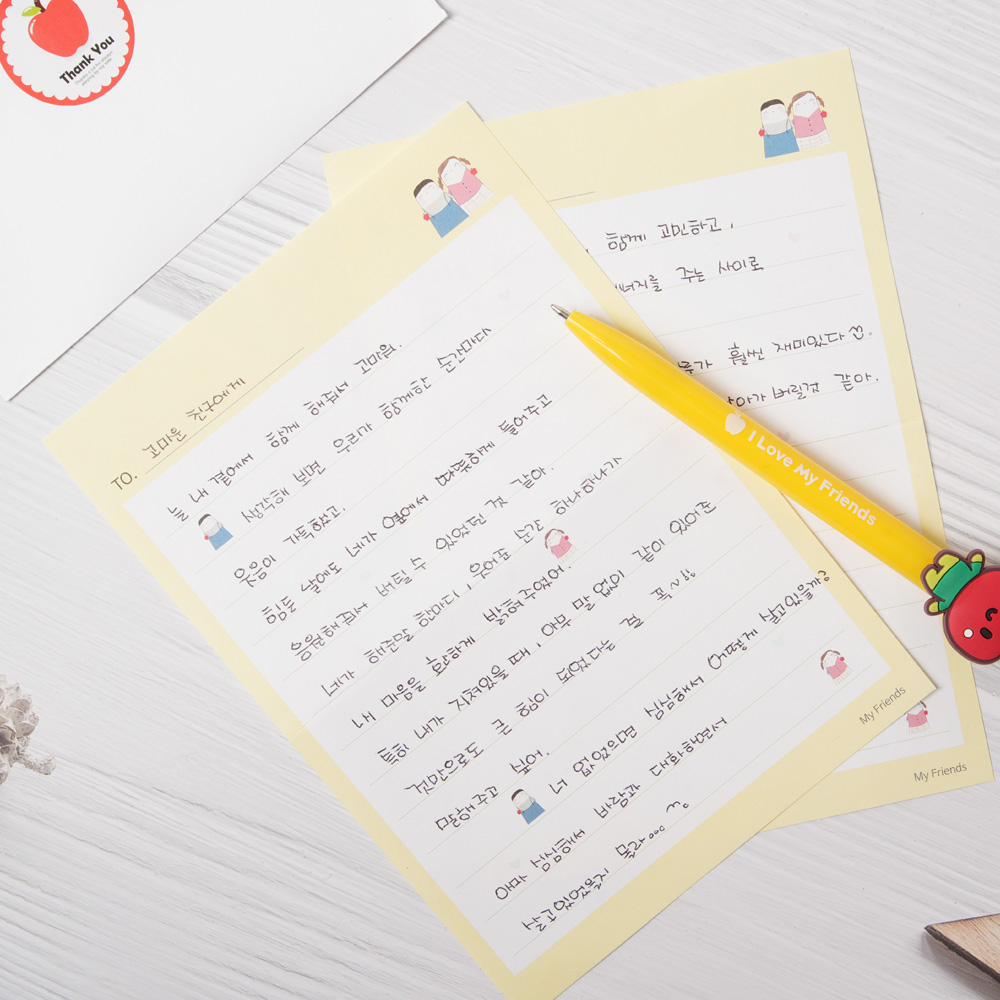 Thank You
TO. 고마운 친구에게
늘 내 곁에서 함께 해줘서 고마워.
생각해 보면 우리가 함께한 순간마다
웃음이 가득했고.
힘든 날에도 너가 옆에서 따뜻하게 들어주고
응원해줘서 버틸 수 있었던 것 같아.
너가 해준말 한마디, 웃어준 순간 하나하나가
내 마음을 환하게 밝혀주었어.
특히 내가 지쳐있을 때, 아무 말 없이 같이 있어준
것만으로도 큰 힘이 되었다는 걸 꼭~!!
말해주고 싶어.
너 없었으면 심심해서 어떻게 살고있을까?
아마 심심해서 바람과 대화하면서
살고있었을지 몰라...
My Friends
함께 고민하고,
너지를 주는 사이로
루가 훨씬 재미있다
아가 버릴것 같아.
My Friends
I Love My Friends